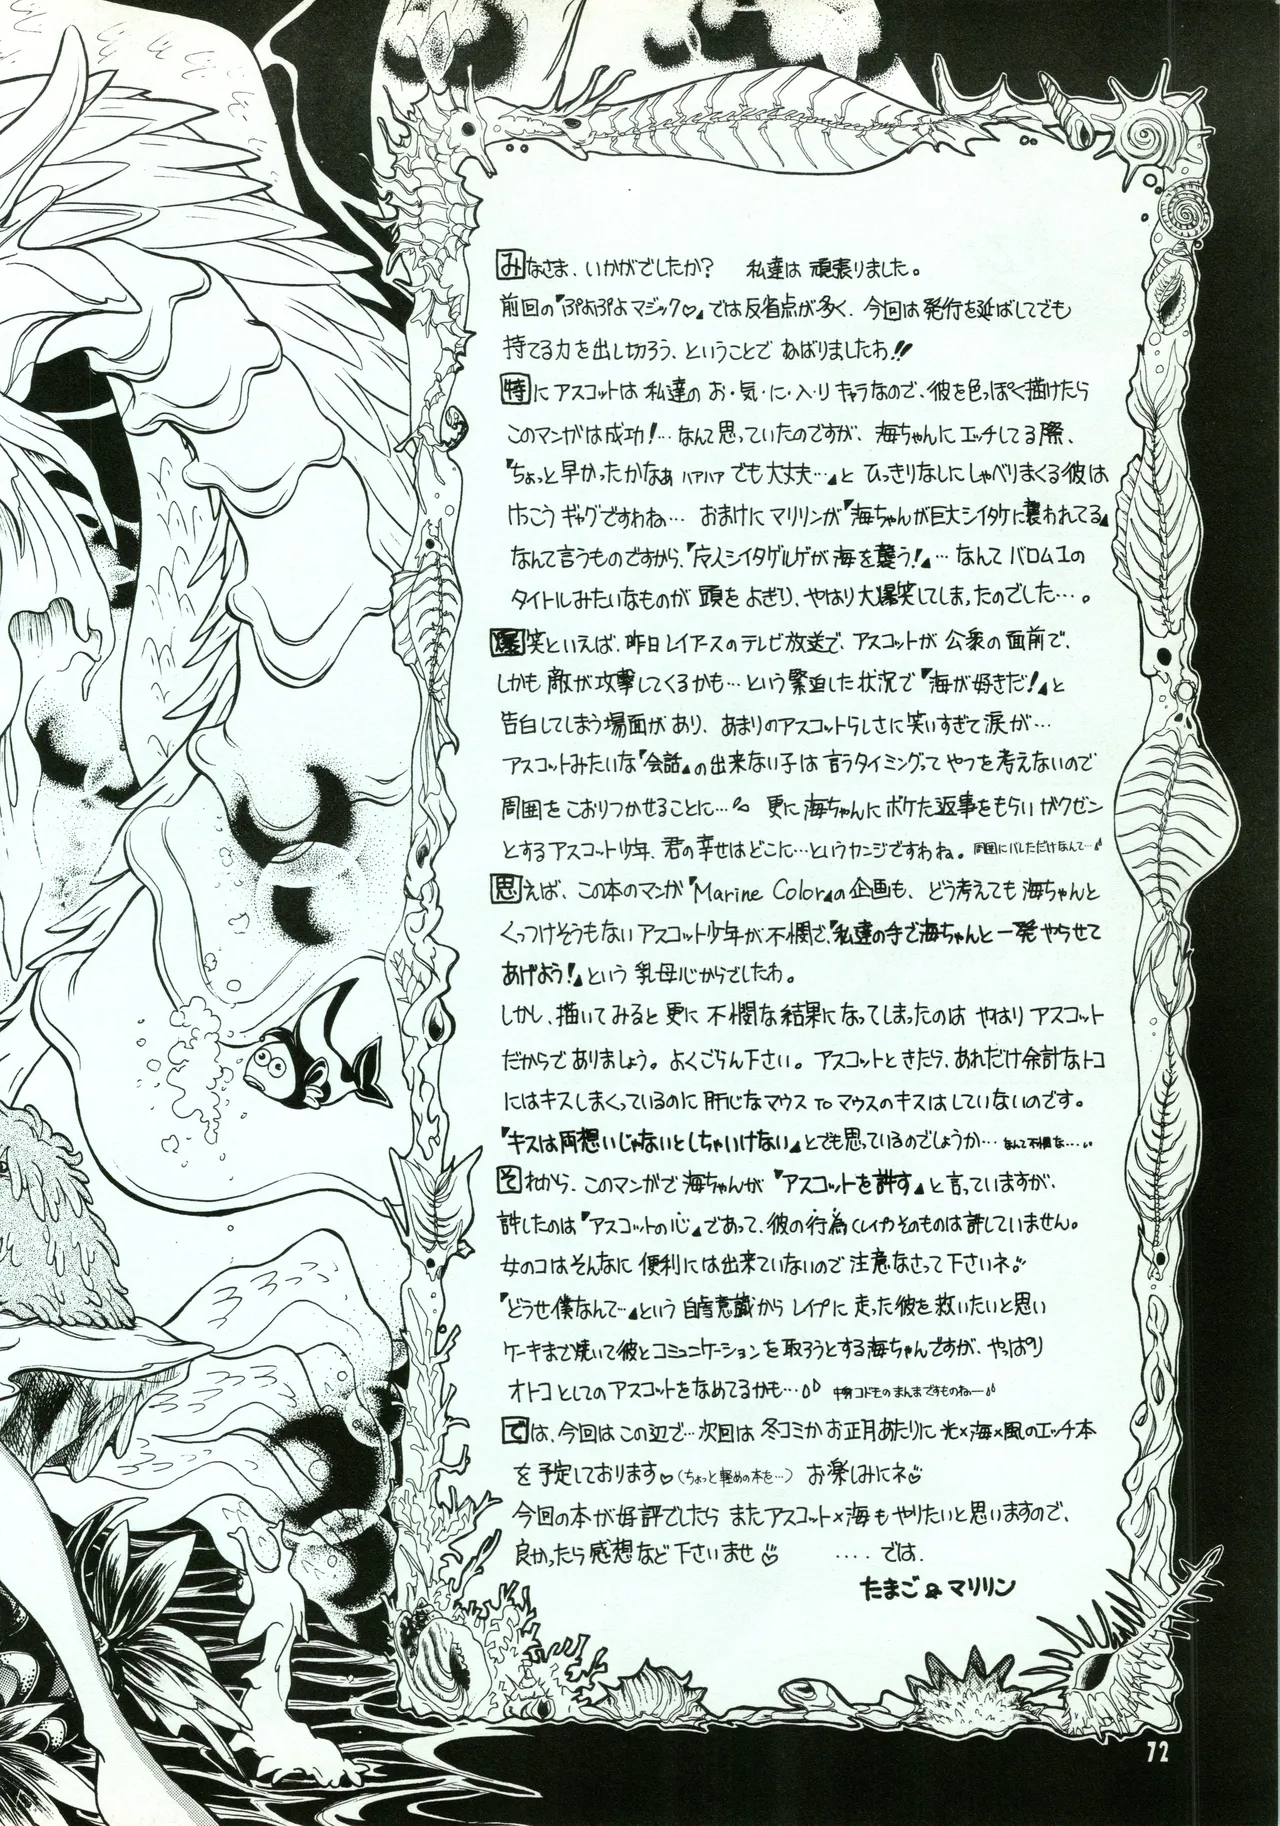 みなさま、いかがでしたか？　私達は頑張りました。
前回の『ぷよぷよマジック♡』では反省点が多く、今回は発行を延ばしてでも
持てる力を出し切ろう、ということでねばりましたわ!!
特にアスコットは私達のお・気・に・入・りキャラなので、彼を色っぽく描けたら
このマンガは成功！…なんて思っていたのですが、海ちゃんにエッチしてる際、
『ちょっと早かったかなぁ ハァハァ でも大丈夫…』と ひっきりなしにしゃべりまくる彼は
けっこうギャグですわね… おまけにマリリンが『海ちゃんが巨大シイタケに襲われてる』
なんて言うものですから、『ドクター人シイタゲルゲが海を襲う！』…なんてバロム1の
タイトルみたいなものが頭をよぎり、やはり大爆笑してしまったのでした…。
爆笑といえば、昨日レイアースのテレビ放送で、アスコットが公衆の面前で、
しかも敵が攻撃してくるかも…という緊迫した状況で『海が好きだ！』と
告白してしまう場面があり、あまりのアスコットらしさに笑いすぎて涙が…
アスコットみたいな『会話』の出来ない子は言うタイミングってやつを考えないので
周囲をこおりつかせることに… 更に海ちゃんにボケた返事をもらいガクゼン
とするアスコット少年、君の幸せはどこに…というカンジですわね。周囲にバレただけなんて…
思えば、この本のマンガ『Marine Color』の企画も、どう考えても海ちゃんと
くっつけそうもないアスコット少年が不憫で、『私達の手で海ちゃんと一発やらせて
あげよう！』という乳母心からでしたわ。
しかし、描いてみると更に不憫な結果になってしまったのは やはりアスコット
だからでありましょう。よくごらん下さい。アスコットときたら、あれだけ余計なトコ
にはキスしまくっているのに肝心なマウス TO マウスのキスはしていないのです。
『キスは両想いじゃないとしちゃいけない』とでも思っているのでしょうか… なんて不憫な…
それから、このマンガで海ちゃんが『アスコットを許す』と言っていますが、
許したのは『アスコットの心』であって、彼の行為（レイプ）そのものは許していません。
女のコはそんなに便利には出来ていないので注意なさって下さいネ
『どうせ僕なんて…』という自虐意識からレイプに走った彼を救いたいと思い
ケーキまで焼いて彼とコミュニケーションを取ろうとする海ちゃんですが、やっぱり
オトコとしてのアスコットをなめてるかも… 中身コドモのまんまですものねー
では、今回はこの辺で…次回は冬コミかお正月あたりに光×海×風のエッチ本
を予定しております♡（ちょっと軽めの本を…） お楽しみにネ♡
今回の本が好評でしたらまたアスコット×海もやりたいと思いますので、
良かったら感想など下さいませ♡　　….では。
たまご&マリリン
72